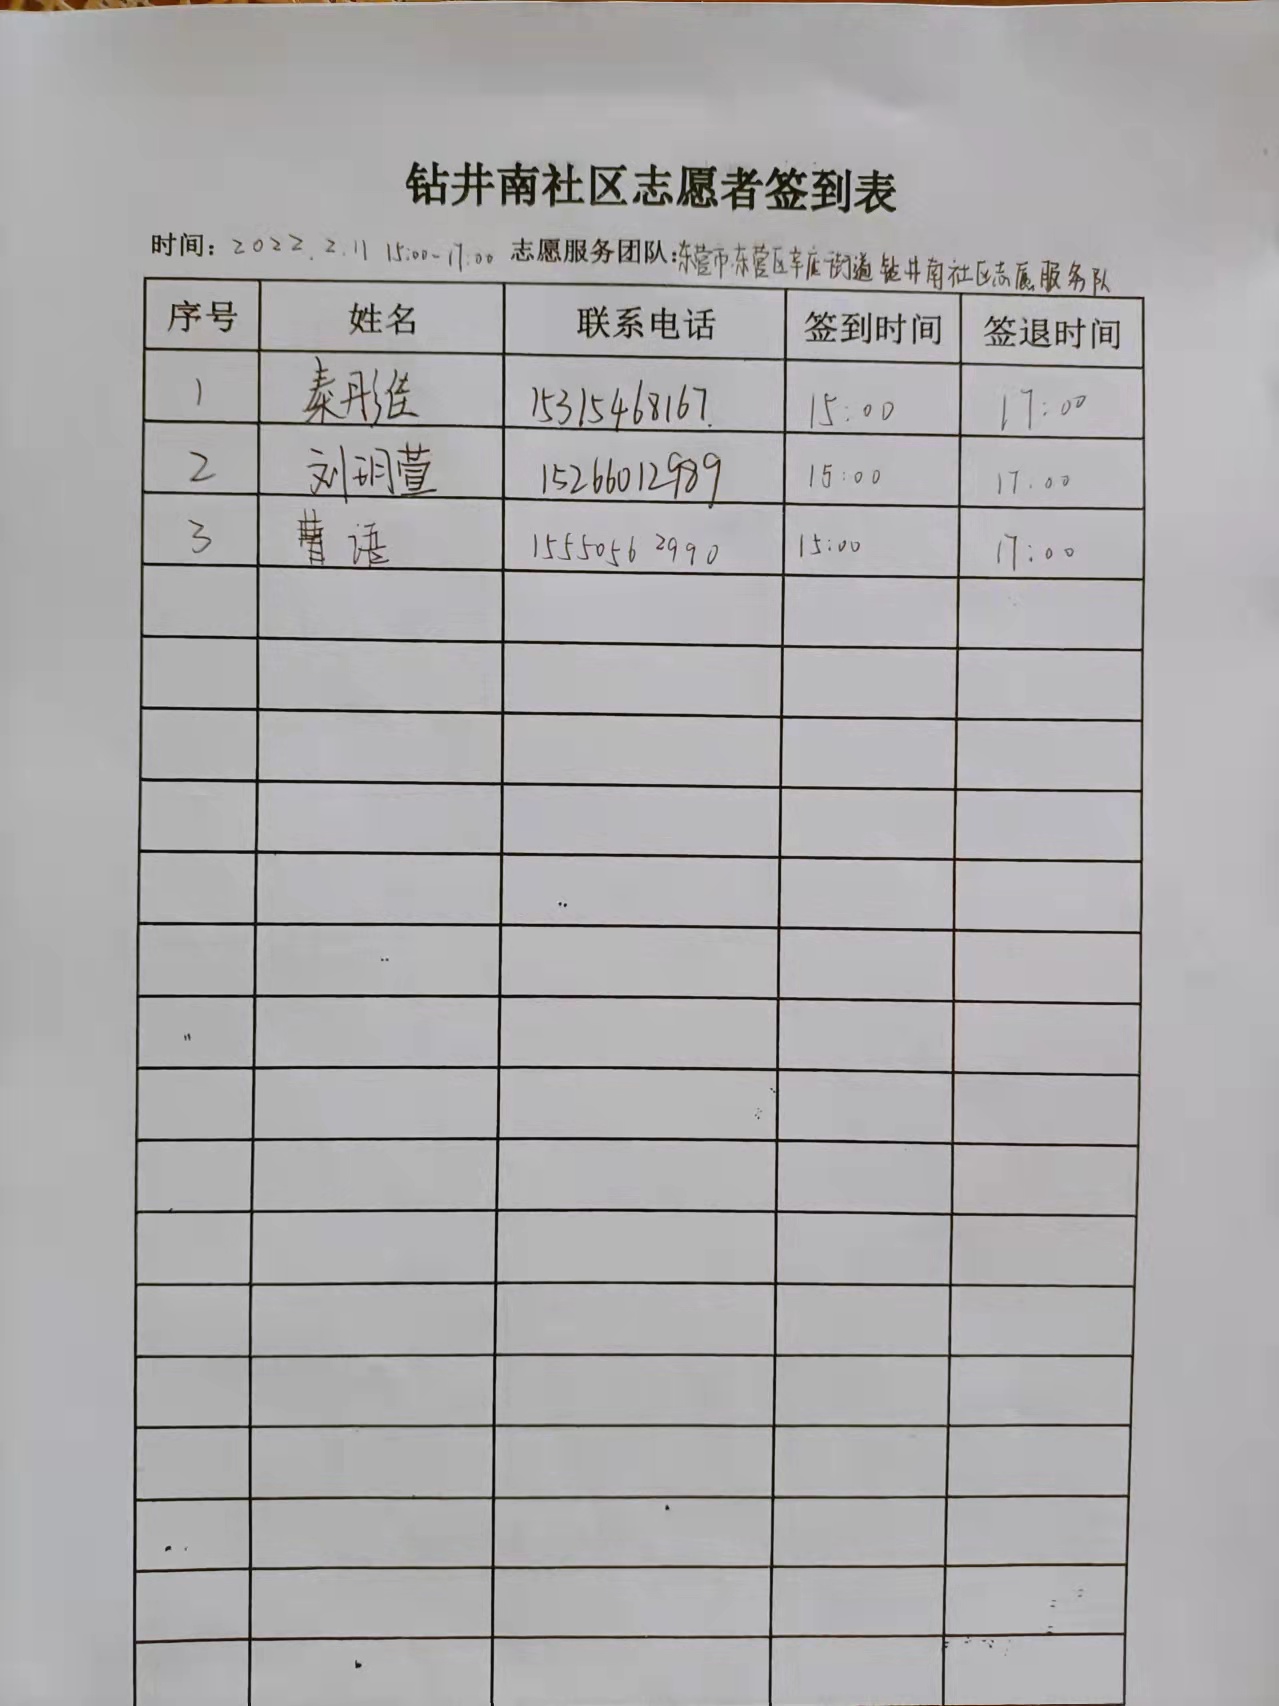 钻井南社区志愿者签到表
时间：2022.2.11 15:00-17:00 志愿服务团队:东营市东营区辛店街道钻井南社区志愿服务队
序号 姓名 联系电话 签到时间 签退时间
1 秦彤佳 15315468167. 15:00 17:00
2 刘玥萱 15266012989 15:00 17.00
3 曹语 15550562990 15:00 17:00